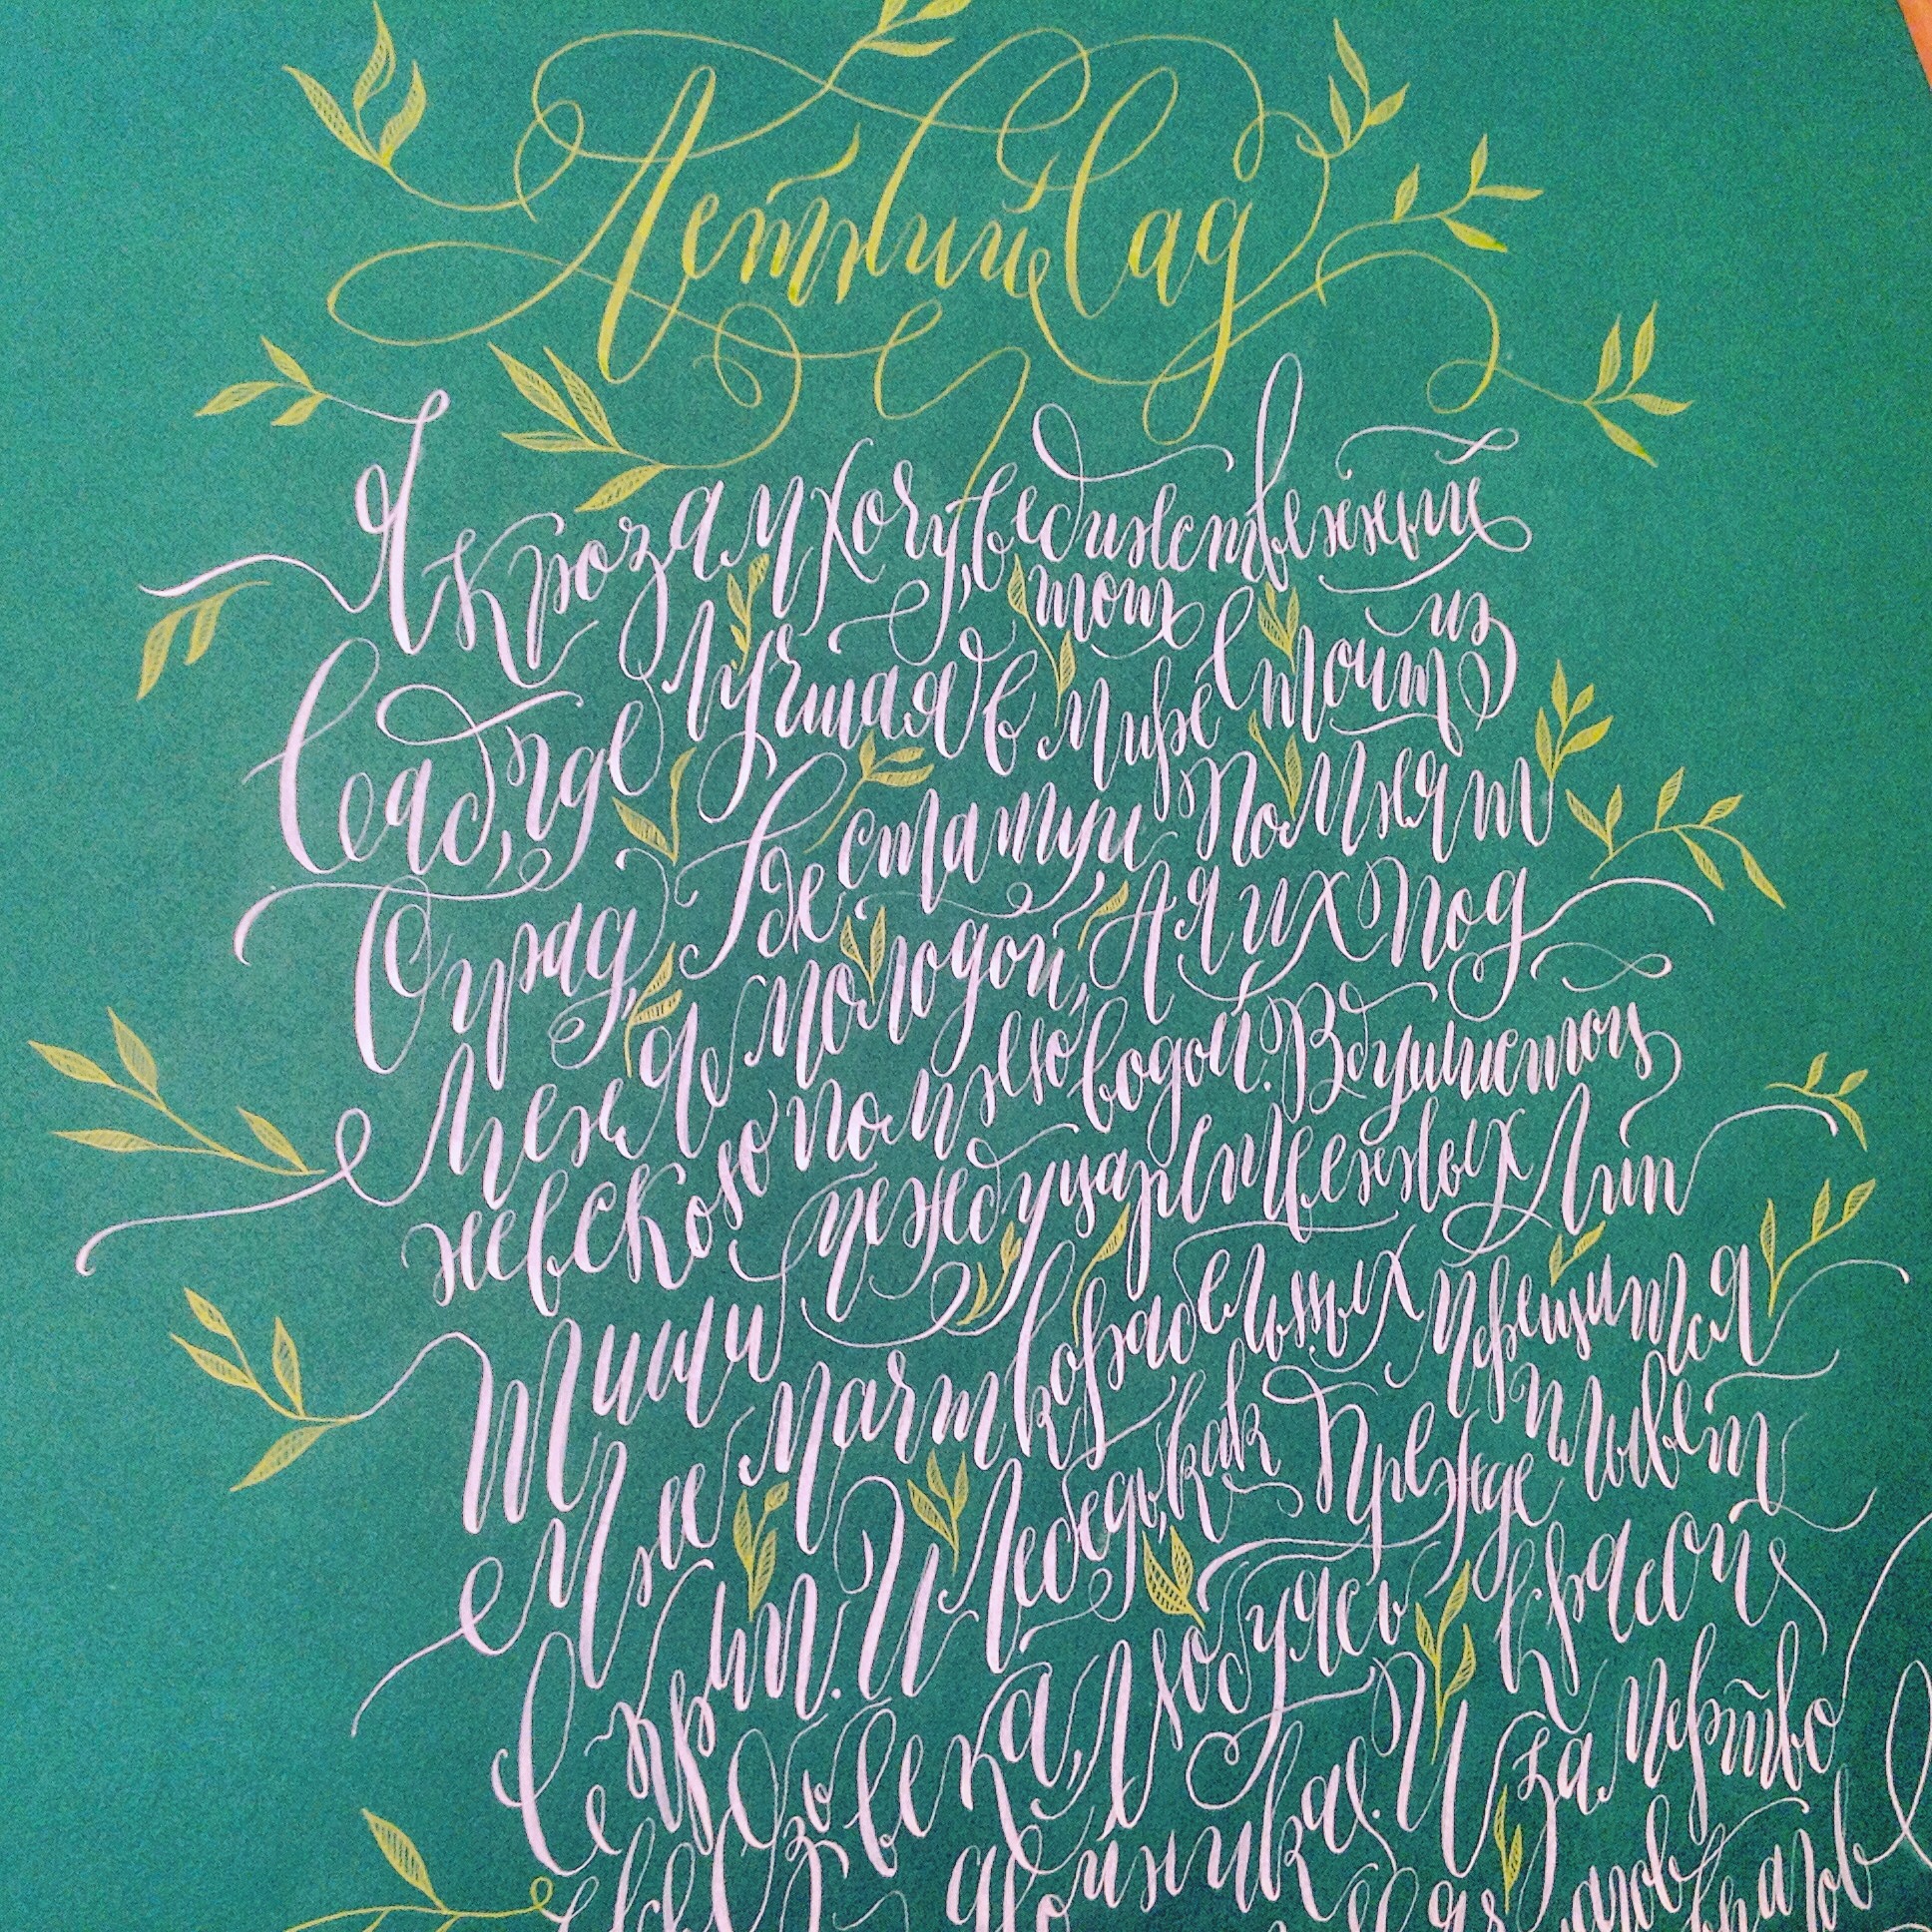 Летний Сад
Я к розам хочу, в тот единственный
Сад, где лучшая в мире Стоит из
Оград, Где статуи Помнят
Меня молодой, А я их под
невскою помню водой. В душистой
Тиши между царственных Лип
Мне мачт корабельных мерещится
Скрип. И Лебедь, как Прежде плывет
Сквозь века, Любуясь красой
двойника. И замертво